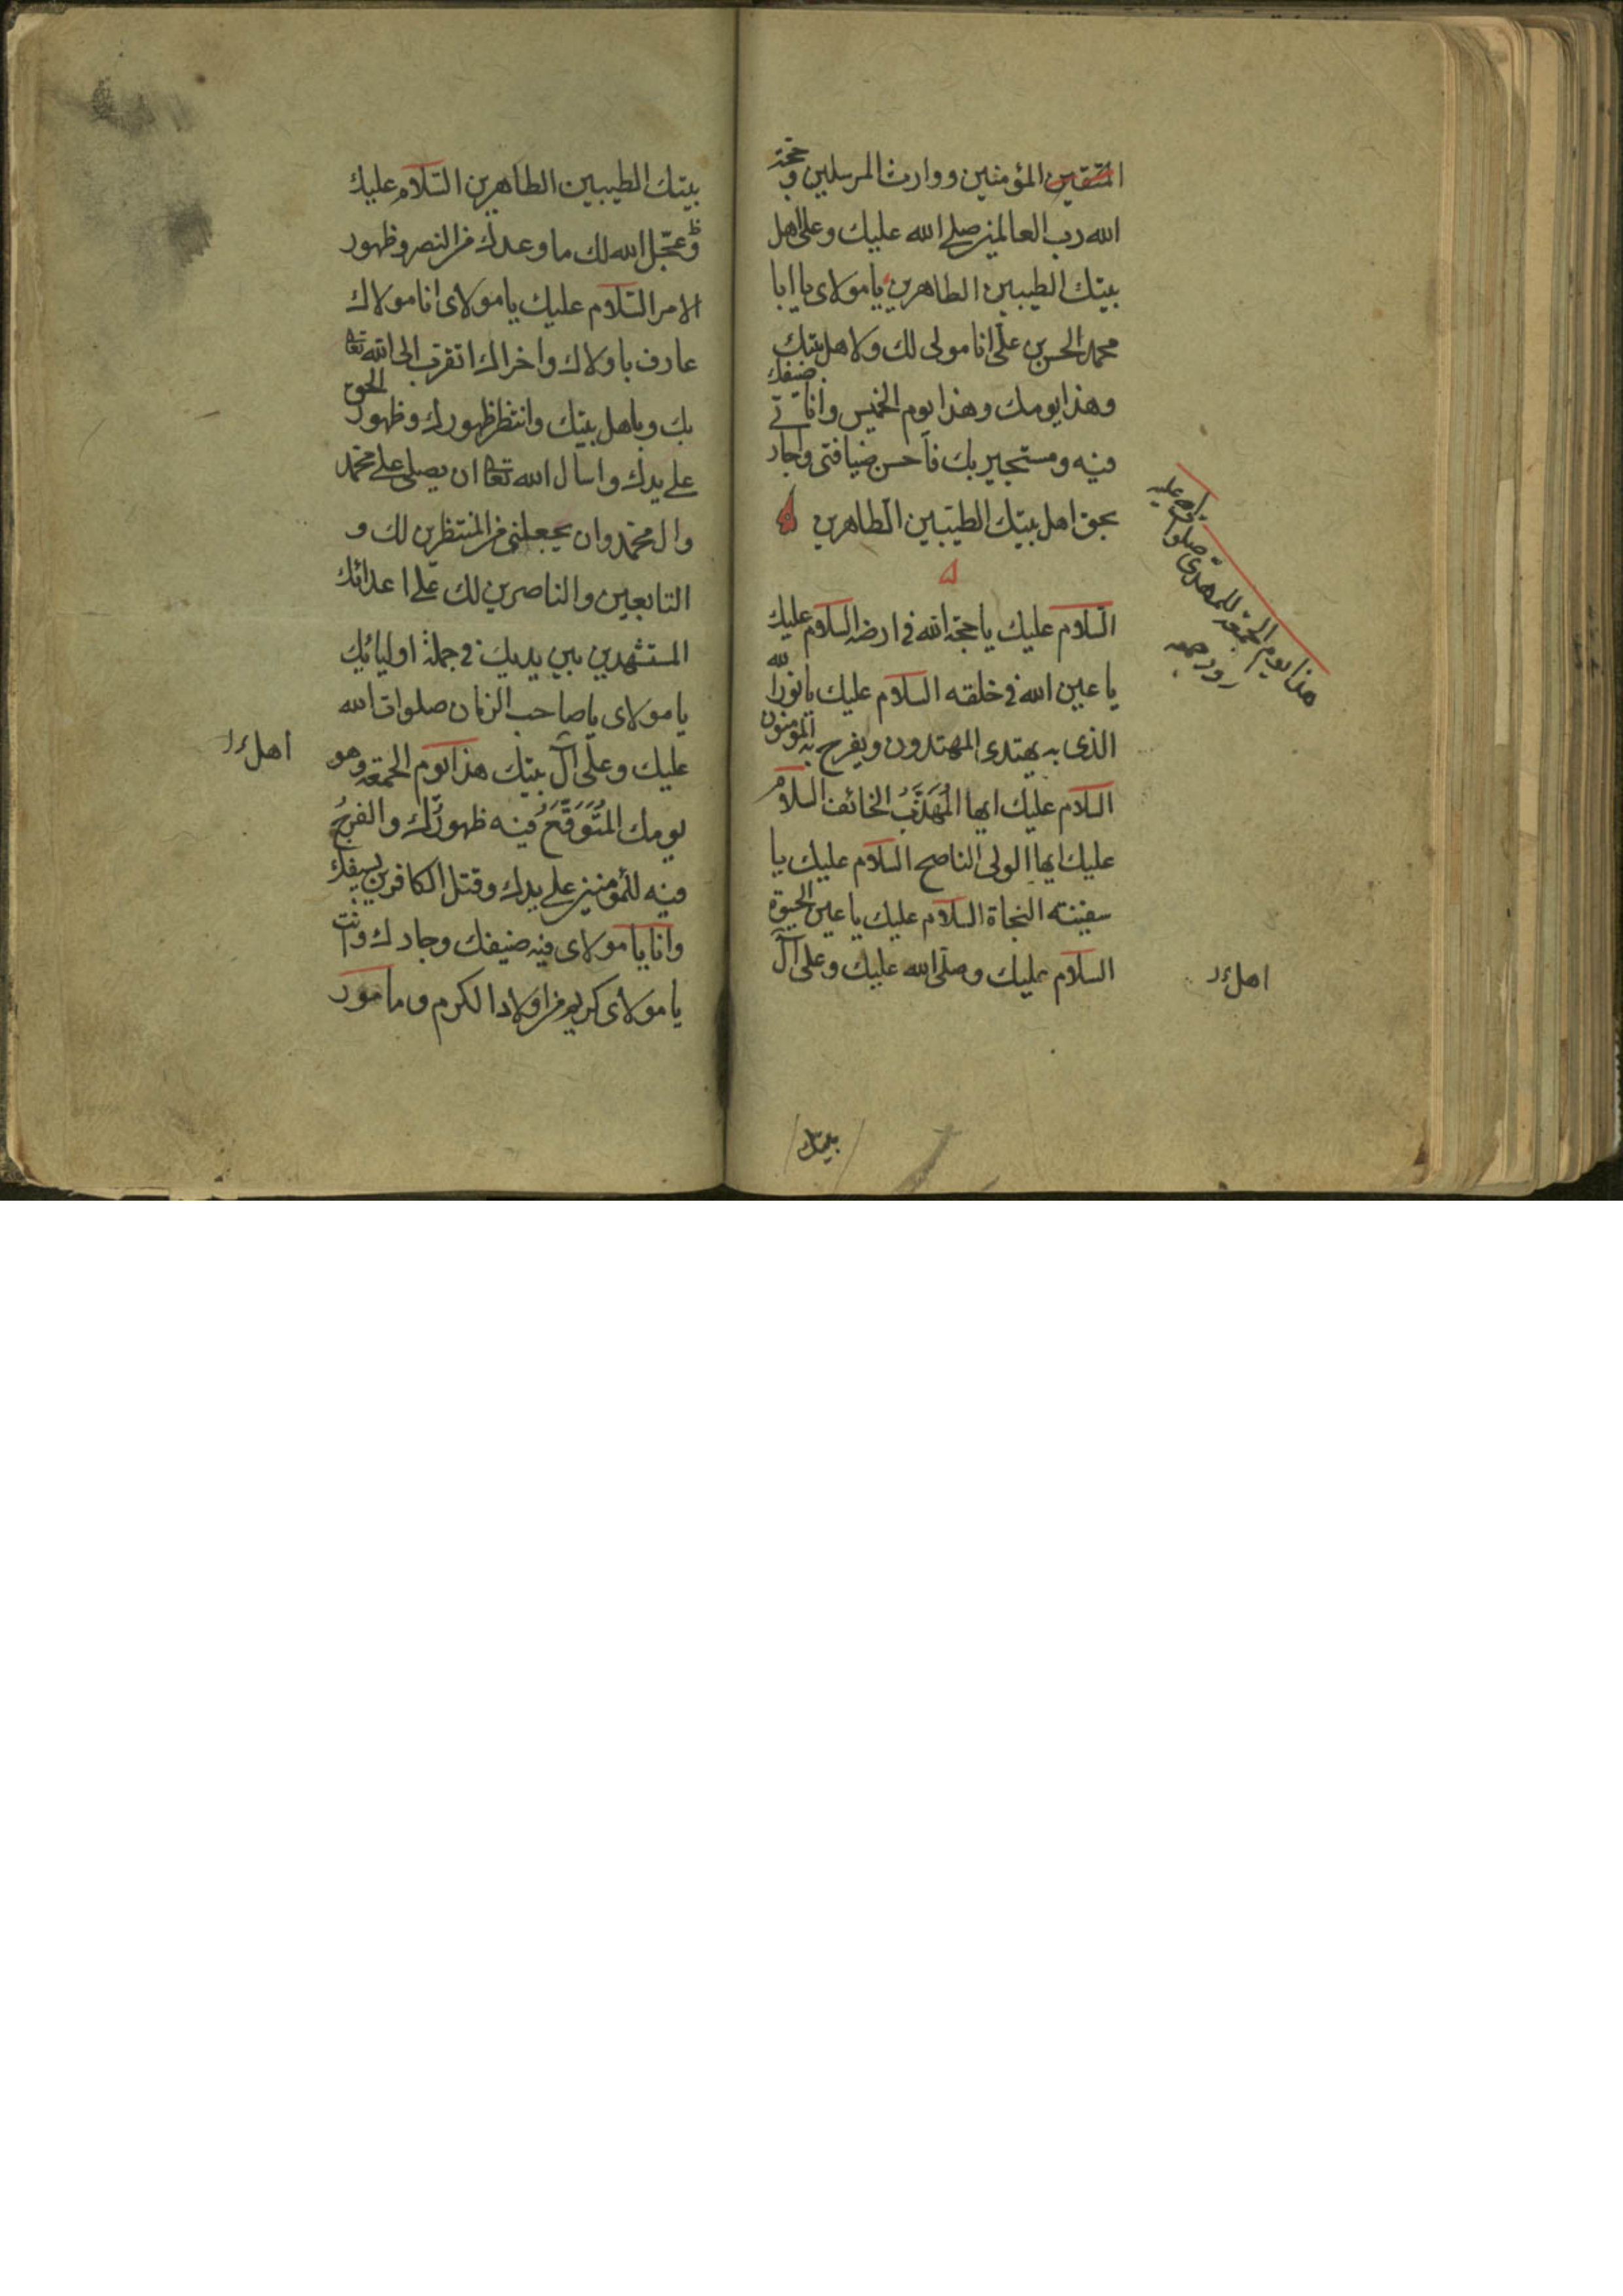 المتقين المؤمنين ووارث المرسلين وحجة
الله رب العالمين صلى الله عليك وعلى اهل
بيتك الطيبين الطاهرين يا مولاى يا ابا
محمد الحسن بن على انا مولى لك ولاهل بيتك
وهذا يومك وهذا يوم الخميس وانا ضيفك
فيه ومستجير بك فاحسن ضيافتى واجار
بحق اهل بيتك الطيبين الطاهرين
السلام عليك يا حجة الله فى ارضه السلام عليك
يا عين الله فى خلقه السلام عليك يا نور الله
الذى به يهتدى المهتدون ويفرج به المؤمنون
السلام عليك ايها المُهَذَّبُ الخائف السلام
عليك ايها الولى الناصح السلام عليك يا
سفينة النجاة السلام عليك يا عين الحيوة
السلام عليك وصلى الله عليك وعلى آل
هذا يوم الجمعة للمهدى صلوات الله عليه
روز جمعه
اهل
بيتك
بيتك الطيبين الطاهرين السلام عليك
وعجّل الله لك ما وعدك من النصر وظهور
الامر السلام عليك يا مولاى انا مولاك
عارف باولاك واخراك اتقرب الى الله تعا
بك وباهل بيتك وانتظر ظهورك وظهور الحق
على يدك واسأل الله تعا ان يصلى على محمد
وال محمد وان يجعلنى من المنتظرين لك و
التابعين والناصرين لك على اعدائك
المستشهدين بين يديك فى جملة اوليائك
يا مولاى يا صاحب الزمان صلوات الله
عليك وعلى آل بيتك هذا يوم الجمعة وهو
يومك المُتَوَقَّعُ فيه ظهورك والفرجُ
فيه للمؤمنين على يدك وقتل الكافرين بسيفك
وانا يا مولاى فيه ضيفك وجارك وانت
يا مولاى كريم من اولاد الكرم ومامور
اهل